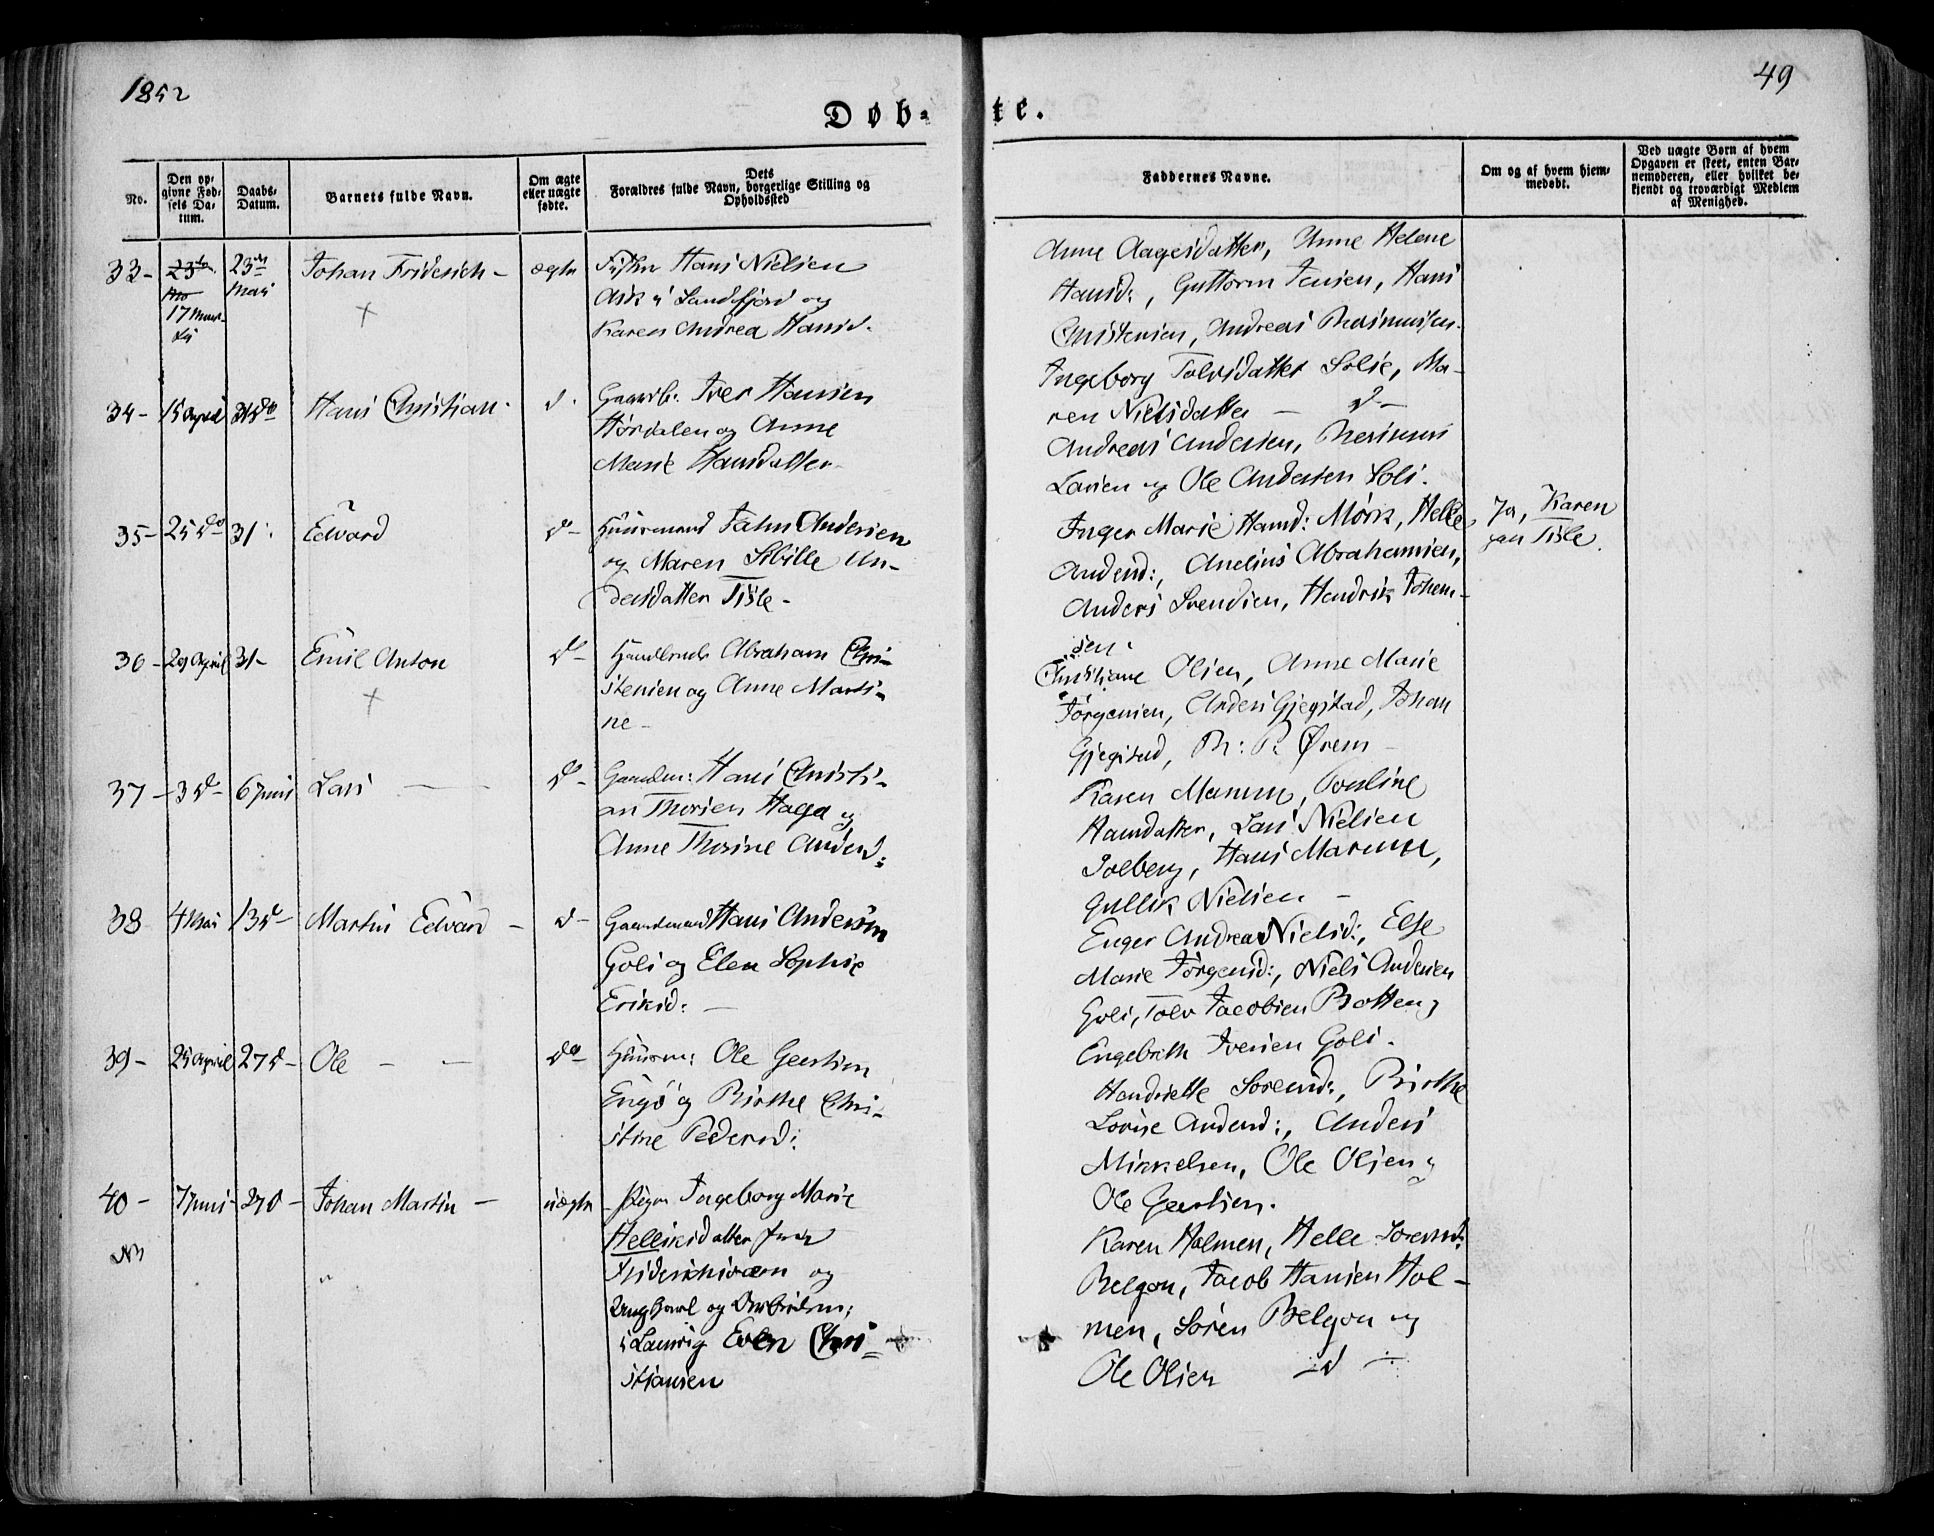 1852
49
Døb-
te.
No.
Den op-
givne Fød-
sels Da-
tum.
Daabs-
Datum.
Barnets fulde Navn.
Om ægte
eller uægte
fødte.
Dets
Forældres fulde Navn, borgerlige Stilling og
Opholdssted
Faddernes Navne.
Om og af hvem hjem-
medøbt.
Ved uægte Børn af hvem
Opgaven er skeet, enten Bar-
nemoderen, eller hvilket be-
kjendt og troværdigt Medlem
af Menighed.
33-
17 Mar-
23de
Mai
Johan Friderich -
ægte
Hans Nielsen
Ask i Sandefjord og
Karen Andrea Hansd.
Anne Aagesdatter, Anne Helene
Hansd:, Guttorm Jensen, Hans
Christensen, Andreas Rasmussen.
34-
15 April
31 do
Hans Christian.
d.
Gaardb: Iver Hansen
Hørdalen og Anne
Marie Hansdatter
Ingeborg Tolvsdatter Solie, Ma-
ren Nielsdatter - d -
Andreas Andersen, Rasmus
Larsen og Ole Andersen Soli.
35-
25 do
31:
Edvard
do-
Huusmand Jahn Andersen
og Maren Sibille An-
dersdatter Tisle -
Inger Marie Hansd: Mørk, Helle
Andersd:, Anelius Abrahamsen,
Anders Svendsen, Hendrik Johan-
sen.
Ja, Karen
Tisle.
36-
29 April
31-
Emil Anton
do-
Abraham Chri-
stensen og Anne Marti-
ne -
Christiane Olsen, Anne Marie
Jørgensen, Anders Gjegstad, Johan
Gjegstad, R: Ørem -
37-
3 do-
6 Juni
Lars
do-
Gaardm: Hans Christi-
an Thorsen Haga og
Anne Thorine Andersd:
Karen Pouline
Hansdatter, Lars Nielsen
Solberg, Hans
Gullik Nielsen -
38
4 Mai
13 d-
Martin Edvard -
d-
Gaardmand Hans Andersen
Goli og Elen Sophie
Eriksd: -
Enger Andrea Nielsd:, Else
Marie Jørgensd:, Niels Andersen
Goli, Tolv Jacobsen Rotten og
Engebreth Iversen Goli.
39-
25 April
27 d-
Ole - -
do-
Huusm: Ole Geertsen
Engø og Birthe Chri-
stine Pedersd:
Hendrikke Sørensd:, Birthe
Lovise Andersd:, Anders
Mikkelsen, Ole Olsen og
Ole Geertsen.
40-
7 Juni-
27 d-
Johan Martin -
uægte
Pigen Ingeborg Marie
Helliksdatter fra
Friderichsværn og
Ungkarl og
i Laurvig Even Chri-
stiansen
Karen Holmen, Helle Sørensd:
Belgon, Jacob Hansen Hol-
men, Søren Belgon og
Ole Olsen